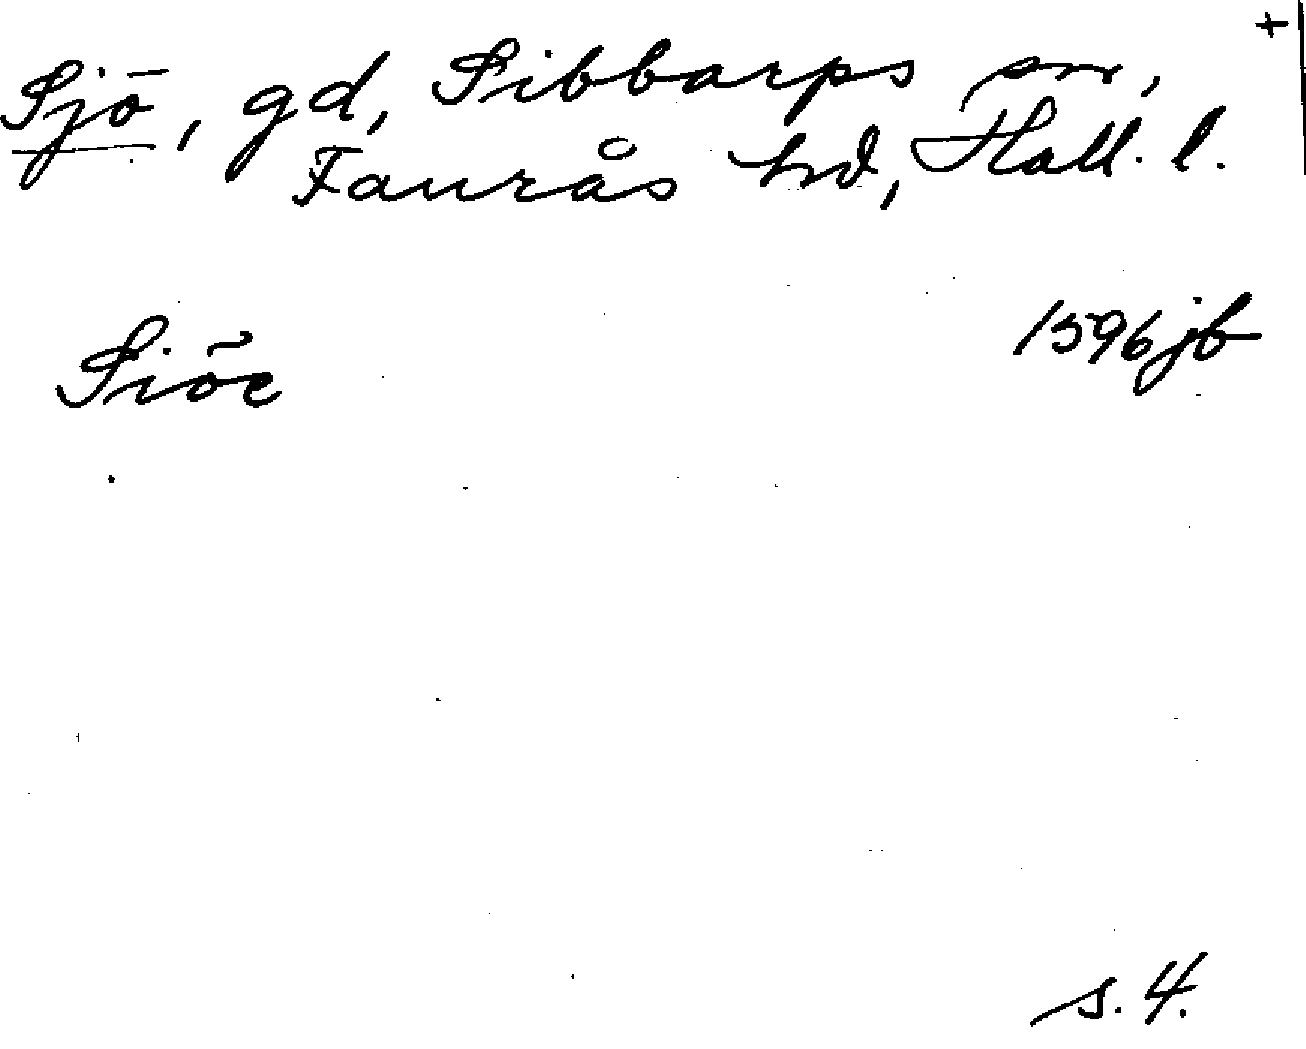 +
Sjö, gd, Sibbarps sn,
Faurås hd, Hall. l.
Siöe 1596 jb
s. 4.